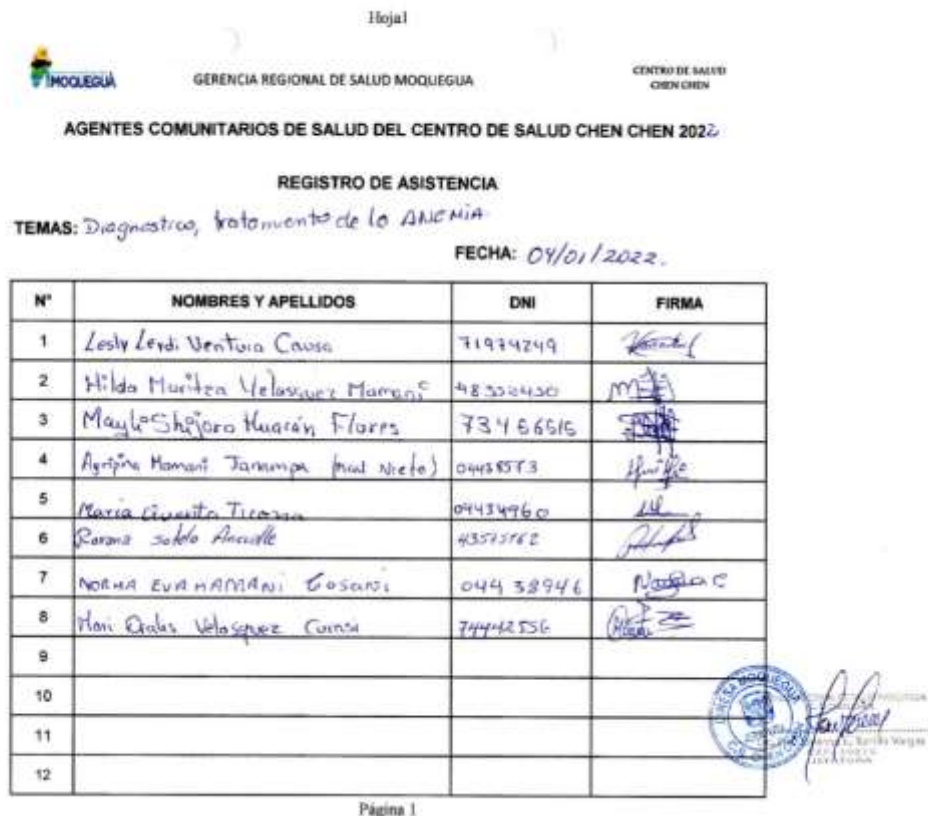 Hoja1
MOQUEGUA
GERENCIA REGIONAL DE SALUD MOQUEGUA
CENTRO DE SALUD
CHEN CHEN
AGENTES COMUNITARIOS DE SALUD DEL CENTRO DE SALUD CHEN CHEN 2022
REGISTRO DE ASISTENCIA
TEMAS: Diagnostico, tratamiento de la ANEMIA
FECHA: 04/01/2022.
N° NOMBRES Y APELLIDOS DNI FIRMA
1 Lesly Leydi Ventura 71974249
2 Hilda Maritza Velasquez Mamani 48352430
3 Huacán Flores 73466515
4 Agripina Mamani 04438573
5 Maria Ticona 04434960
6 Sotelo 43575762
7 NORMA EVA MAMANI 04438946
8 Velasquez 74442556
9
10
11
12
MOQUEGUA
Vargas
Página 1